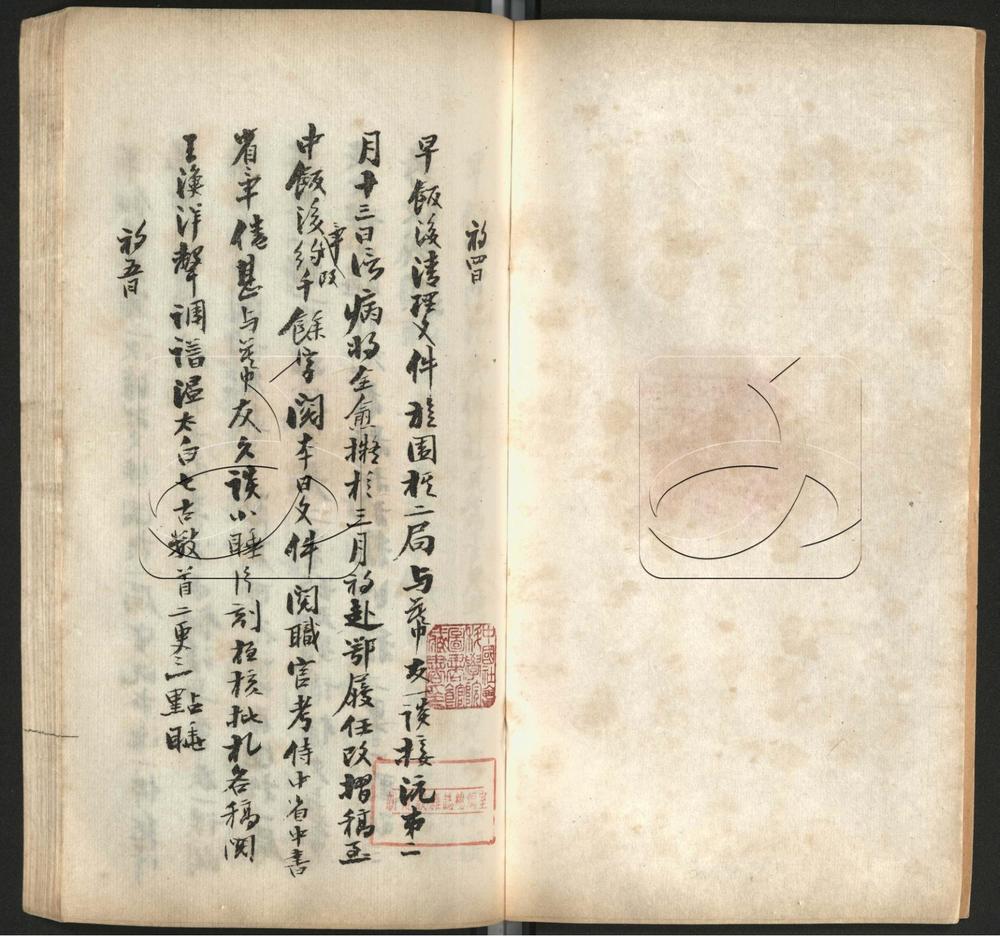 初四日
早飯後清理文件旋圍棋二局与幕友一談接沅弟二
月十三日信病將全愈擬於三月初赴鄂履任改摺稿至
中飯後畢改約千餘字閱本日文件閱職官考侍中省中書
省畢倦甚与幕友久談小睡片刻核批札各稿閱
王漁洋聲調譜温太白七古數首二更三點睡
初五日